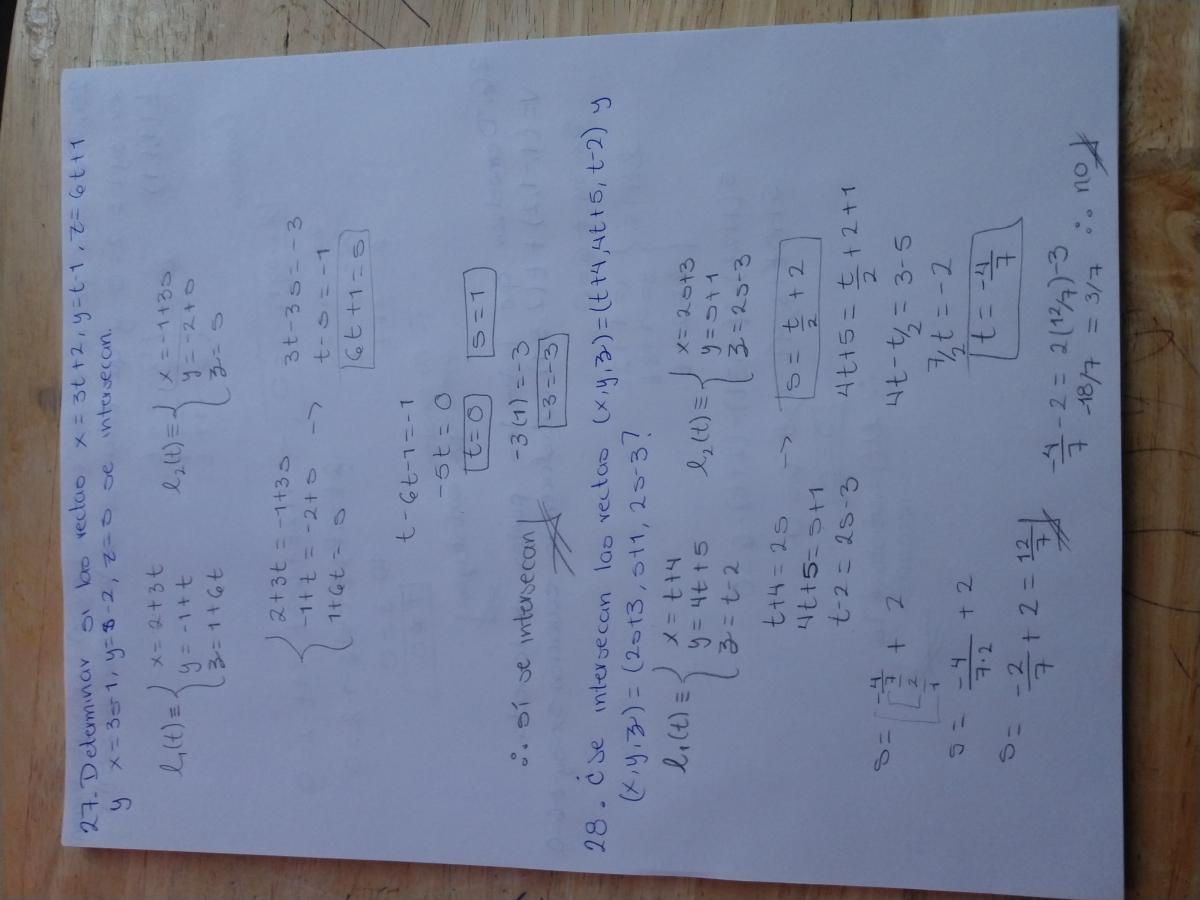 27. Determinar si las rectas x = 3t+2, y = t-1, z = 6t+1
y x = 3s-1, y = s-2, z = s se intersecan.
l₁(t) ≡ { x = 2+3t
y = -1+t
z = 1+6t
l₂(t) ≡ { x = -1+3s
y = -2+s
z = s
{ 2+3t = -1+3s
-1+t = -2+s ->
1+6t = s
3t-3s = -3
t-s = -1
6t+1 = s
t-6t-1 = -1
-5t = 0
t = 0
s = 1
-3(1) = -3
-3 = -3
∴ sí se intersecan
28. ¿Se intersecan las rectas (x,y,z) = (t+4, 4t+5, t-2) y
(x,y,z) = (2s+3, s+1, 2s-3?
l₁(t) ≡ { x = t+4
y = 4t+5
z = t-2
l₂(t) ≡ { x = 2s+3
y = s+1
z = 2s-3
t+4 = 2s
4t+5 = s+1 ->
t-2 = 2s-3
s = t/2 + 2
4t+5 = t/2 + 2+1
4t - t/2 = 3-5
7/2 t = -2
t = -4/7
s = [-4/7 / 2/1] + 2
s = -4/7·2 + 2
s = -2/7 + 2 = 12/7
-4/7 - 2 = 2(12/7)-3
-18/7 = 3/7 ∴ no